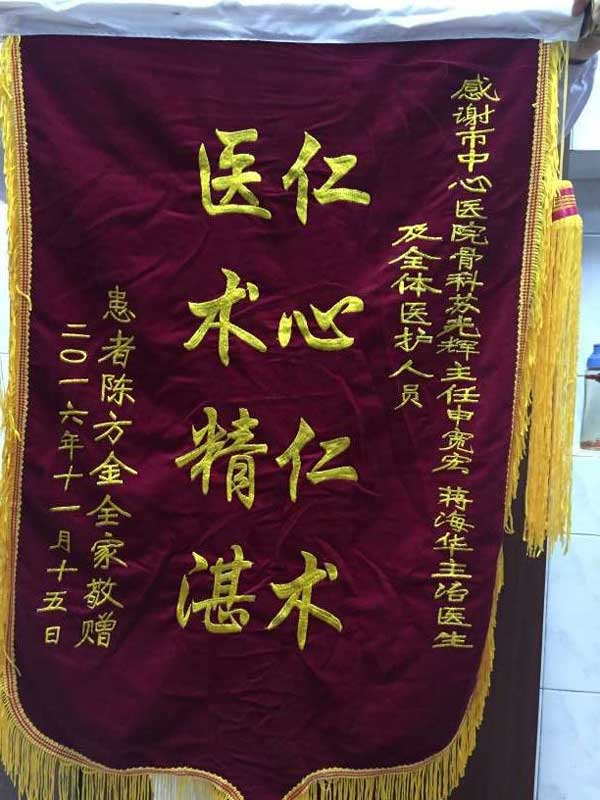 感谢市中心医院骨科苏光辉主任申宽宏 蒋海华主治医生
及全体医护人员
仁心仁术
医术精湛
患者陈方金全家敬赠
二〇一六年十一月十五日